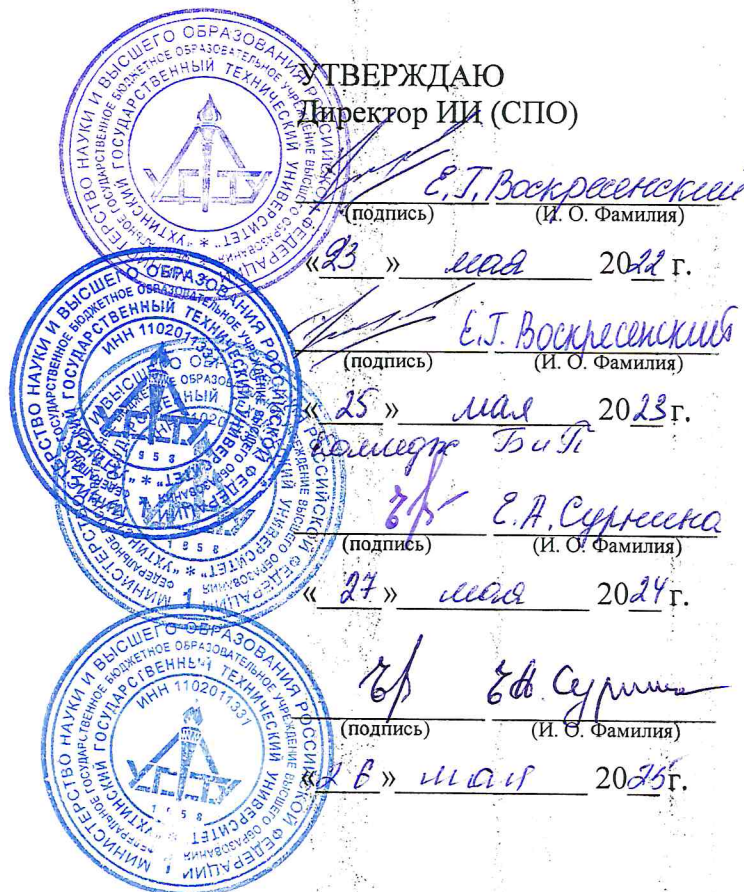 УТВЕРЖДАЮ
Директор ИИ (СПО)
Е.Г. Воскресенский
(подпись) (И. О. Фамилия)
«23» мая 2022 г.
Е.Г. Воскресенский
(подпись) (И. О. Фамилия)
«25» мая 2023 г.
Колледж
Е.А. Сурнина
(подпись) (И. О. Фамилия)
«27» мая 2024 г.
Е.А. Сурнина
(подпись) (И. О. Фамилия)
«26» мая 2025 г.
МИНИСТЕРСТВО НАУКИ И ВЫСШЕГО ОБРАЗОВАНИЯ РОССИЙСКОЙ ФЕДЕРАЦИИ
ФЕДЕРАЛЬНОЕ ГОСУДАРСТВЕННОЕ БЮДЖЕТНОЕ ОБРАЗОВАТЕЛЬНОЕ УЧРЕЖДЕНИЕ ВЫСШЕГО ОБРАЗОВАНИЯ
"УХТИНСКИЙ ГОСУДАРСТВЕННЫЙ ТЕХНИЧЕСКИЙ УНИВЕРСИТЕТ"
ИНН 1102011331
УГТУ
1958
1